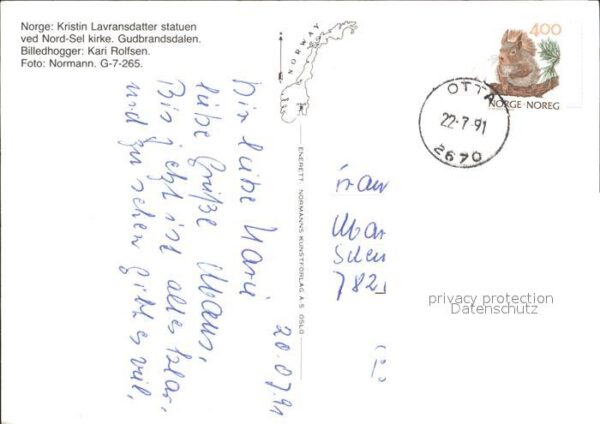 Norge: Kristin Lavransdatter statuen
ved Nord-Sel kirke. Gudbrandsdalen.
Billedhogger: Kari Rolfsen.
Foto: Normann. G-7-265.
NORWAY
400
NORGE·NOREG
OTTA
22-7-91
2670
ENERETT NORMANNS KUNSTFORLAG A.S. OSLO
20.07.91
liebe Marie
liebe Grüße
Bis jetzt ist alles klar,
und zu sehen gibt es viel,
Frau
782
privacy protection
Datenschutz